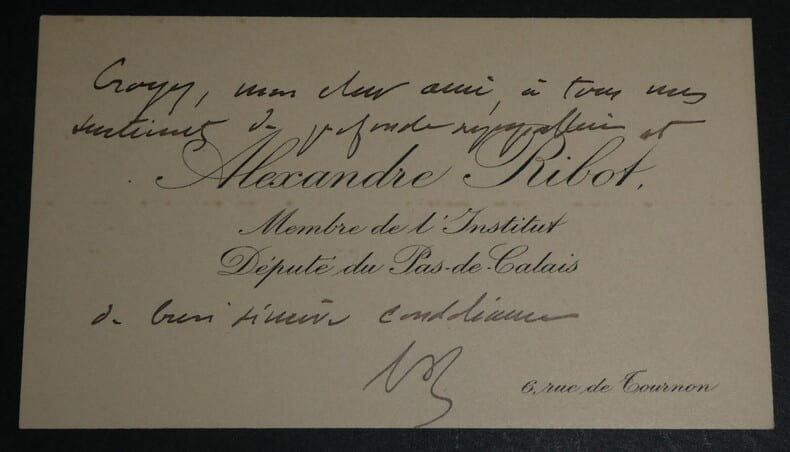 Croyez, mon cher ami, à tous mes
sentiments de profonde sympathie et
Alexandre Ribot,
Membre de l'Institut
Député du Pas-de-Calais
de bien sincère condoléance
6, rue de Tournon